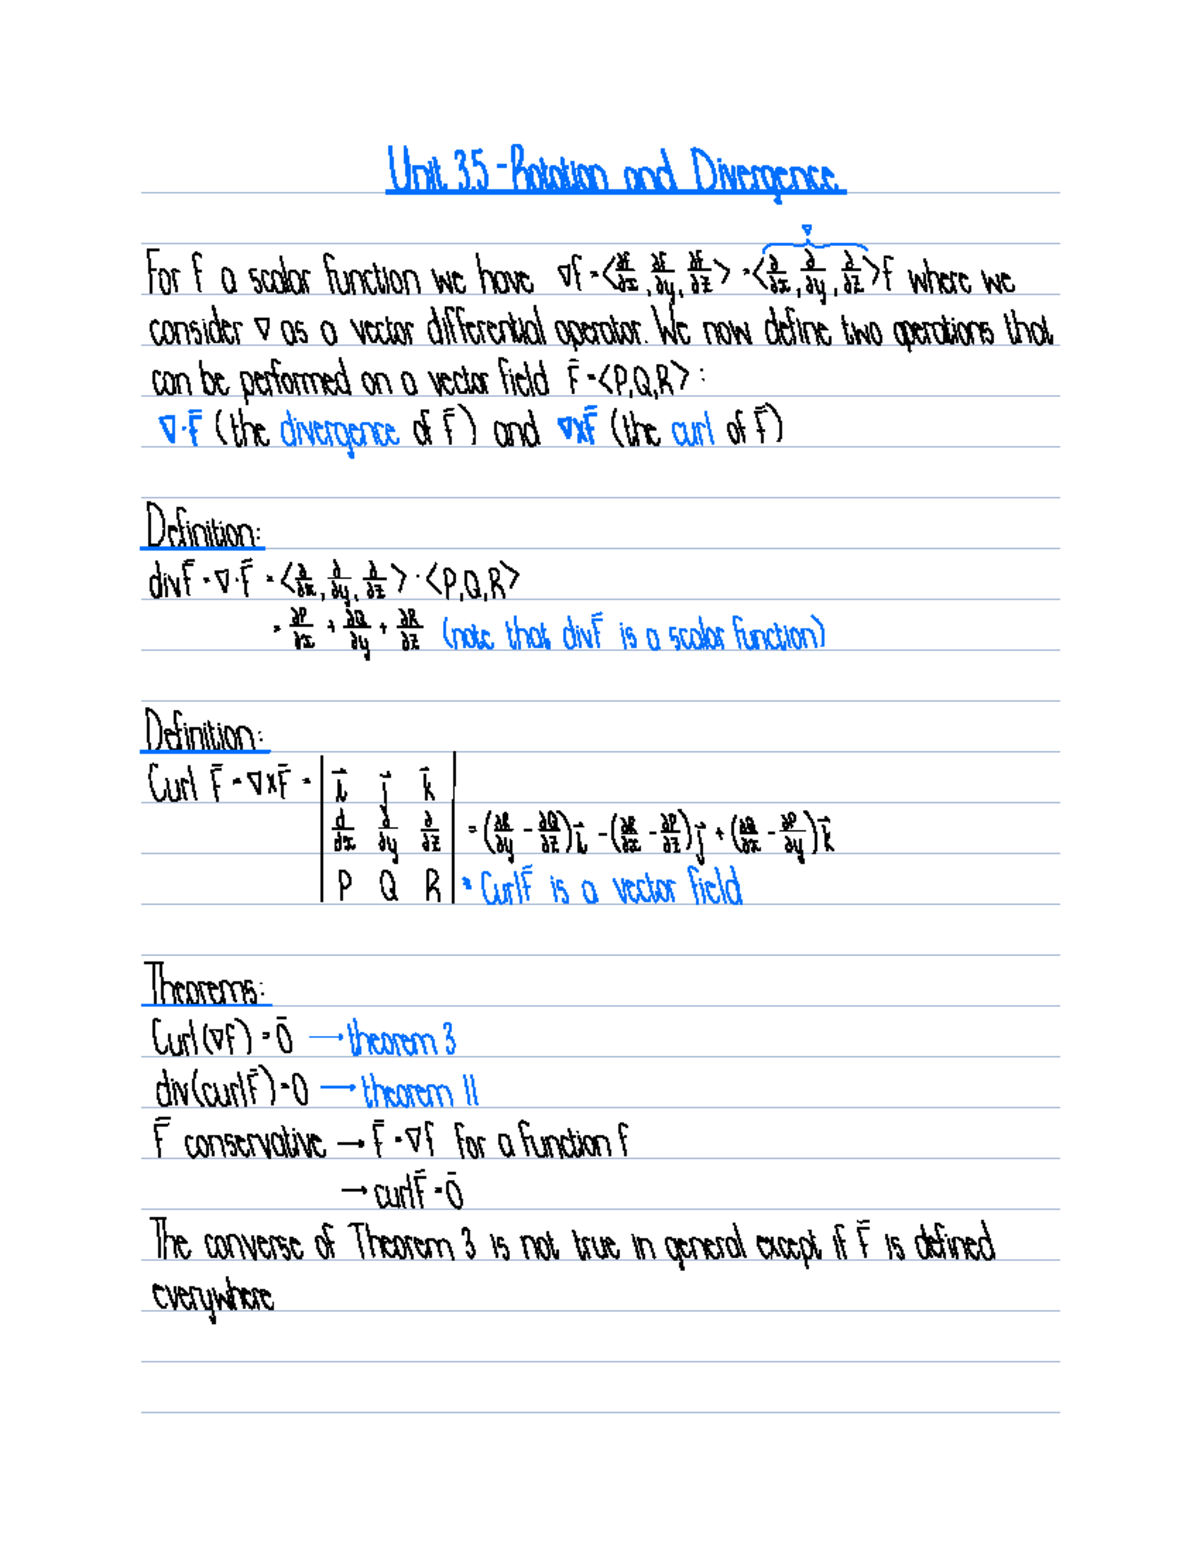 Unit 3.5 - Rotation and Divergence
∇
For f a scalar function we have ∇f = <∂f/∂x, ∂f/∂y, ∂f/∂z> = <∂/∂x, ∂/∂y, ∂/∂z>f where we
consider ∇ as a vector differential operator. We now define two operations that
can be performed on a vector field F̄ = <P,Q,R> :
∇·F̄ (the divergence of F̄) and ∇xF̄ (the curl of F̄)
Definition:
divF̄ = ∇·F̄ = <∂/∂x, ∂/∂y, ∂/∂z> · <P,Q,R>
= ∂P/∂x + ∂Q/∂y + ∂R/∂z (note that divF̄ is a scalar function)
Definition:
Curl F̄ = ∇xF̄ = | i⃗ j⃗ k⃗ |
| ∂/∂x ∂/∂y ∂/∂z | = (∂R/∂y - ∂Q/∂z)i⃗ - (∂R/∂x - ∂P/∂z)j⃗ + (∂Q/∂x - ∂P/∂y)k⃗
| P Q R | * CurlF̄ is a vector field
Theorems:
Curl(∇f) = 0̄ → theorem 3
div(curlF̄) = 0 → theorem 11
F̄ conservative → F̄ = ∇f for a function f
→ curlF̄ = 0̄
The converse of Theorem 3 is not true in general except if F̄ is defined
everywhere